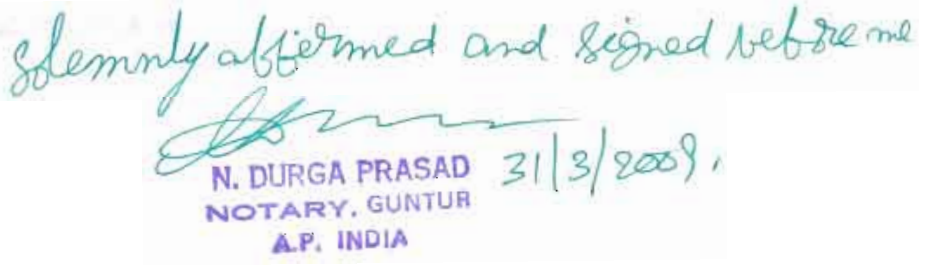 Solemnly affirmed and signed before me
31/3/2009.
N. DURGA PRASAD
NOTARY, GUNTUR
A.P. INDIA